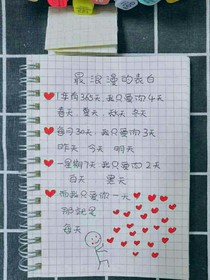 最浪漫的表白
1年有365天 我只爱你4天
春天、夏天 秋天 冬天
每月30天 我只爱你3天
昨天 今天 明天
一星期7天 我只爱你2天
白天 黑天
而我只爱你一天
那就是
每天